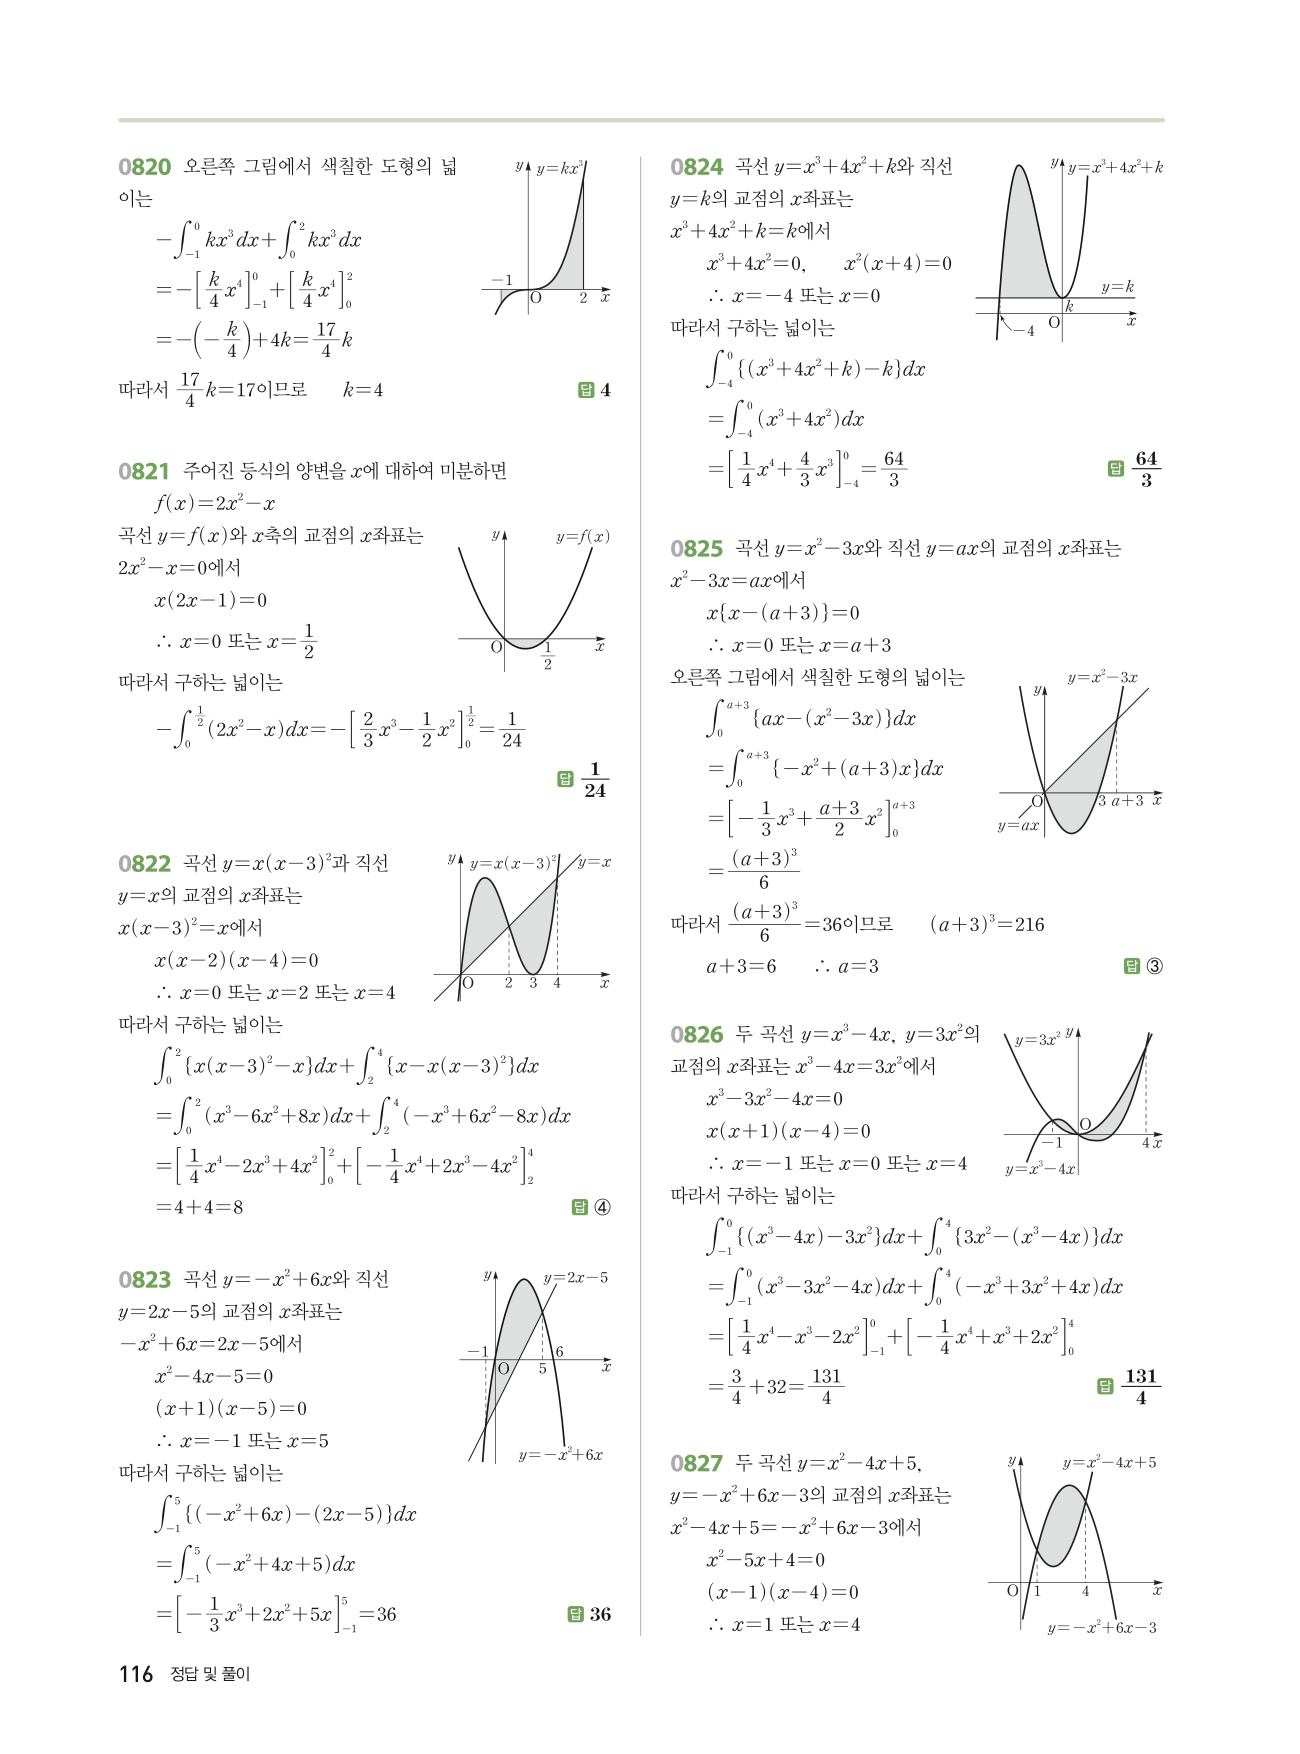 0820 오른쪽 그림에서 색칠한 도형의 넓
이는
−∫_{−1}^{0} kx³dx+∫_{0}^{2} kx³dx
=−[k/4 x⁴]_{−1}^{0}+[k/4 x⁴]_{0}^{2}
=−(−k/4)+4k=17/4 k
따라서 17/4 k=17이므로 k=4
답 4
y y=kx³
−1 O 2 x
0821 주어진 등식의 양변을 x에 대하여 미분하면
f(x)=2x²−x
곡선 y=f(x)와 x축의 교점의 x좌표는
2x²−x=0에서
x(2x−1)=0
∴ x=0 또는 x=1/2
따라서 구하는 넓이는
−∫_{0}^{1/2} (2x²−x)dx=−[2/3 x³−1/2 x²]_{0}^{1/2}=1/24
답 1/24
y y=f(x)
O 1/2 x
0822 곡선 y=x(x−3)²과 직선
y=x의 교점의 x좌표는
x(x−3)²=x에서
x(x−2)(x−4)=0
∴ x=0 또는 x=2 또는 x=4
따라서 구하는 넓이는
∫_{0}^{2} {x(x−3)²−x}dx+∫_{2}^{4} {x−x(x−3)²}dx
=∫_{0}^{2} (x³−6x²+8x)dx+∫_{2}^{4} (−x³+6x²−8x)dx
=[1/4 x⁴−2x³+4x²]_{0}^{2}+[−1/4 x⁴+2x³−4x²]_{2}^{4}
=4+4=8
답 ④
y y=x(x−3)² y=x
O 2 3 4 x
0823 곡선 y=−x²+6x와 직선
y=2x−5의 교점의 x좌표는
−x²+6x=2x−5에서
x²−4x−5=0
(x+1)(x−5)=0
∴ x=−1 또는 x=5
따라서 구하는 넓이는
∫_{−1}^{5} {(−x²+6x)−(2x−5)}dx
=∫_{−1}^{5} (−x²+4x+5)dx
=[−1/3 x³+2x²+5x]_{−1}^{5}=36
답 36
y y=2x−5
−1 O 5 6 x
y=−x²+6x
0824 곡선 y=x³+4x²+k와 직선
y=k의 교점의 x좌표는
x³+4x²+k=k에서
x³+4x²=0, x²(x+4)=0
∴ x=−4 또는 x=0
따라서 구하는 넓이는
∫_{−4}^{0} {(x³+4x²+k)−k}dx
=∫_{−4}^{0} (x³+4x²)dx
=[1/4 x⁴+4/3 x³]_{−4}^{0}=64/3
답 64/3
y y=x³+4x²+k
y=k
k
−4 O x
0825 곡선 y=x²−3x와 직선 y=ax의 교점의 x좌표는
x²−3x=ax에서
x{x−(a+3)}=0
∴ x=0 또는 x=a+3
오른쪽 그림에서 색칠한 도형의 넓이는
∫_{0}^{a+3} {ax−(x²−3x)}dx
=∫_{0}^{a+3} {−x²+(a+3)x}dx
=[−1/3 x³+(a+3)/2 x²]_{0}^{a+3}
=(a+3)³/6
따라서 (a+3)³/6=36이므로 (a+3)³=216
a+3=6 ∴ a=3
답 ③
y y=x²−3x
O 3 a+3 x
y=ax
0826 두 곡선 y=x³−4x, y=3x²의
교점의 x좌표는 x³−4x=3x²에서
x³−3x²−4x=0
x(x+1)(x−4)=0
∴ x=−1 또는 x=0 또는 x=4
따라서 구하는 넓이는
∫_{−1}^{0} {(x³−4x)−3x²}dx+∫_{0}^{4} {3x²−(x³−4x)}dx
=∫_{−1}^{0} (x³−3x²−4x)dx+∫_{0}^{4} (−x³+3x²+4x)dx
=[1/4 x⁴−x³−2x²]_{−1}^{0}+[−1/4 x⁴+x³+2x²]_{0}^{4}
=3/4+32=131/4
답 131/4
y=3x² y
O
−1 4 x
y=x³−4x
0827 두 곡선 y=x²−4x+5,
y=−x²+6x−3의 교점의 x좌표는
x²−4x+5=−x²+6x−3에서
x²−5x+4=0
(x−1)(x−4)=0
∴ x=1 또는 x=4
y y=x²−4x+5
O 1 4 x
y=−x²+6x−3
116 정답 및 풀이